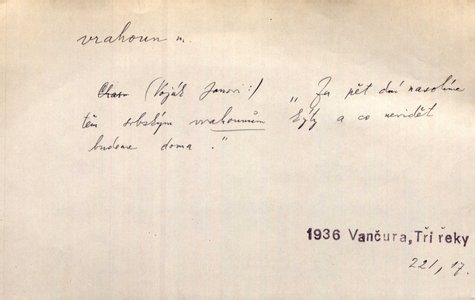 vrahoun m.
(Voják Janovi:) „Za pět dní nasolíme
těm srbským vrahounům kýty a co nevidět
budeme doma."
1936 Vančura, Tři řeky
221, 17.